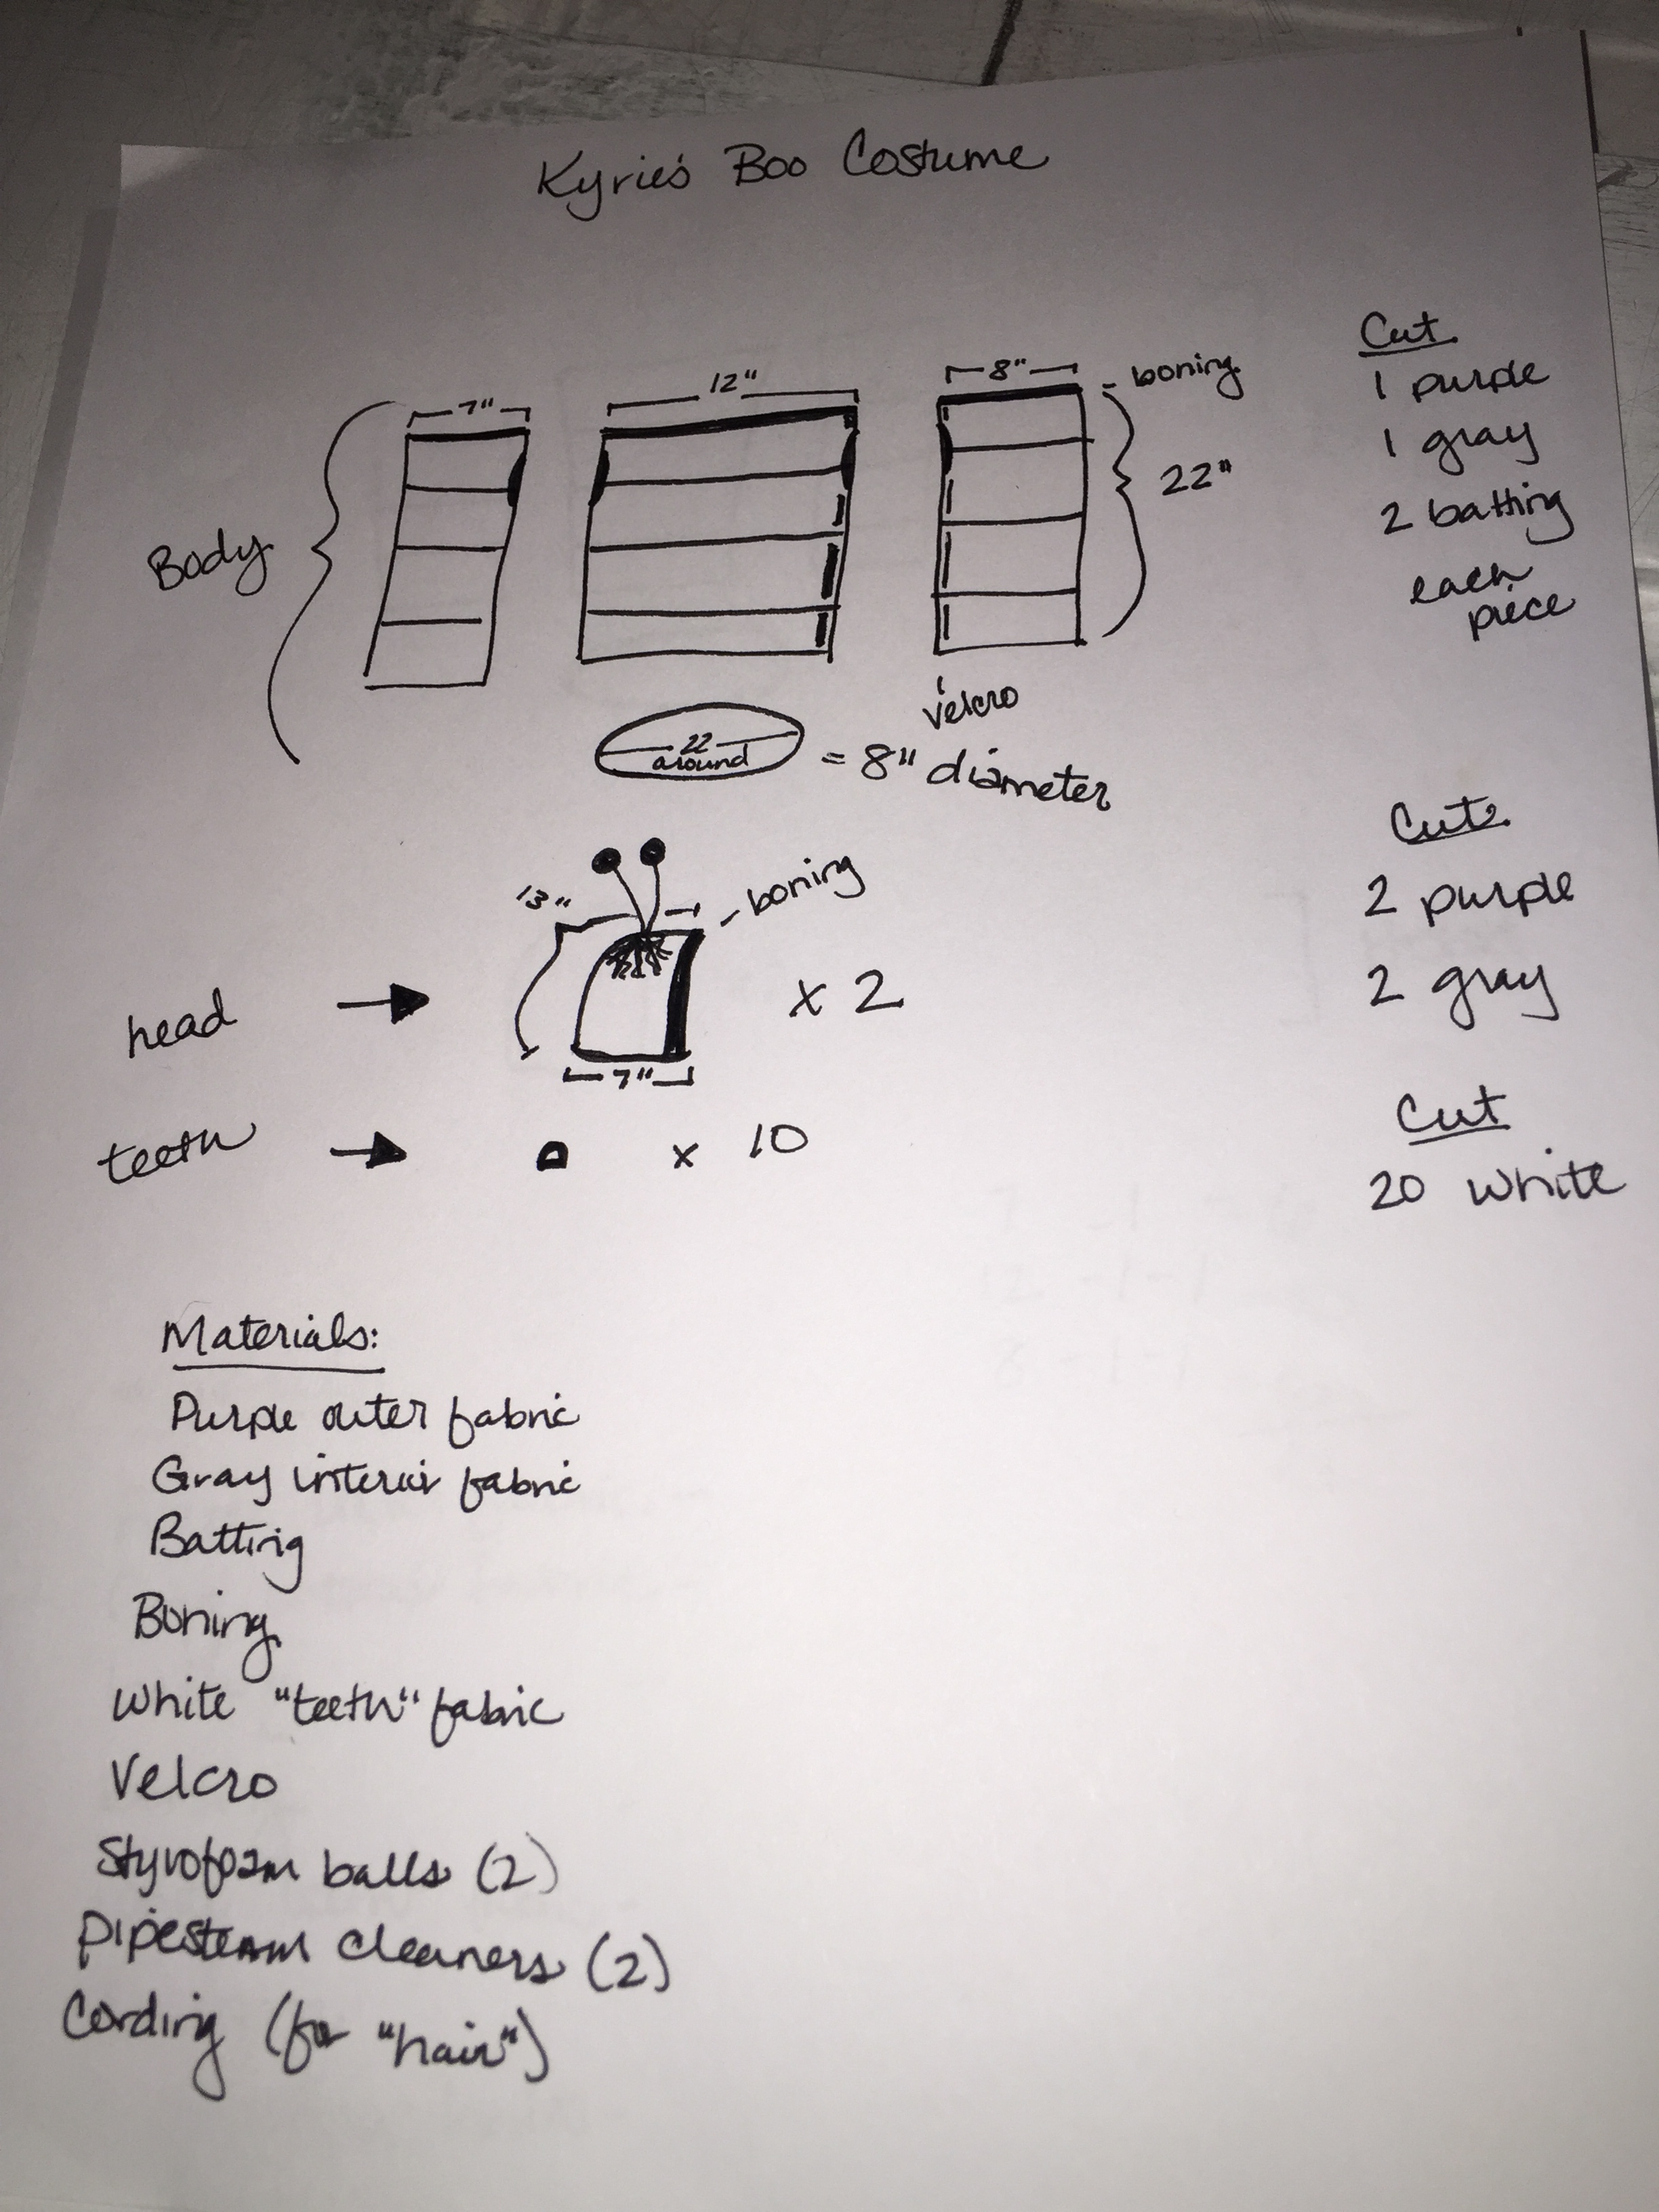 Kyrie's Boo Costume
Body
7"
12"
8"
- boning
22"
velcro
Cut
1 purple
1 gray
2 batting
each
piece
22
around
= 8" diameter
head
13"
- boning
7"
x 2
Cut
2 purple
2 gray
teeth
x 10
Cut
20 white
Materials:
Purple outer fabric
Gray interior fabric
Batting
Boning
White "teeth" fabric
Velcro
Styrofoam balls (2)
cleaners (2)
Cording (for "hair")